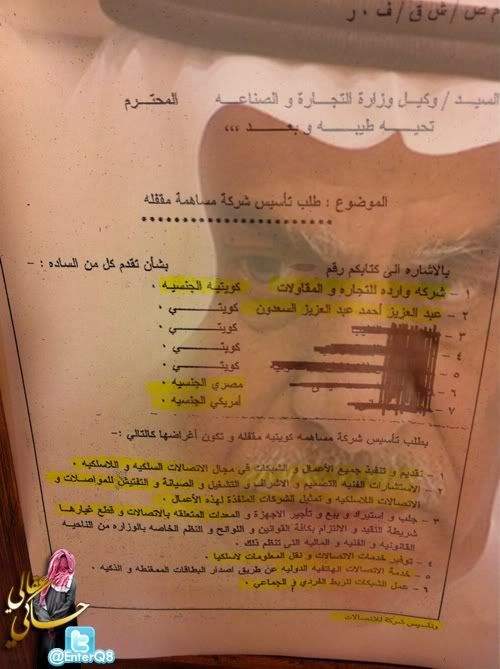 م ص / ش ق / ف ٠ ر
السيد / وكيل وزارة التجارة و الصناعه المحترم
تحيه طيبه و بعد ،،،
الموضوع : طلب تأسيس شركة مساهمة مقفله
بالاشاره الى كتابكم رقم بشأن تقدم كل من الساده : -
١ - شركه وارده للتجاره و المقاولات كويتيه الجنسيه ٠
٢ - عبد العزيز أحمد عبد العزيز السعدون كويتي ٠
٣ - كويتي ٠
٤ - كويتي ٠
٥ - كويتي ٠
٦ - مصري الجنسيه ٠
٧ - أمريكي الجنسيه ٠
بطلب تأسيس شركة مساهمه كويتيه مقفله و تكون أغراضها كالتالي :-
١ - تقديم و تنفيذ جميع الأعمال و الشبكات في مجال الاتصالات السلكيه و اللاسلكيه ٠
٢ - الاستشارات الفنيه التصميم و الاشراف و التشغيل و الصيانة و التفتيش للمواصلات و
الاتصالات اللاسلكيه و تمثيل الشركات المنفذة لهذه الأعمال ٠
٣ - جلب و إستيراد و بيع و تأجير الاجهزة و المعدات المتعلقه بالاتصالات و قطع غيارها
شريطة التقيد و الالتزام بكافة القوانين و اللوائح و النظم الخاصه بالوزاره من الناحيه
القانونيه و الفنيه و الماليه التي تنظم ذلك ٠
٤ - توفير خدمات الاتصالات و نقل المعلومات لاسلكيا ٠
٥ - خدمة الاتصالات الهاتفيه الدوليه عن طريق اصدار البطاقات الممغنطه و الذكيه ٠
٦ - عمل الشبكات للربط الفردي و الجماعي ٠
وتأسيس شركة للاتصالات
@EnterQ8